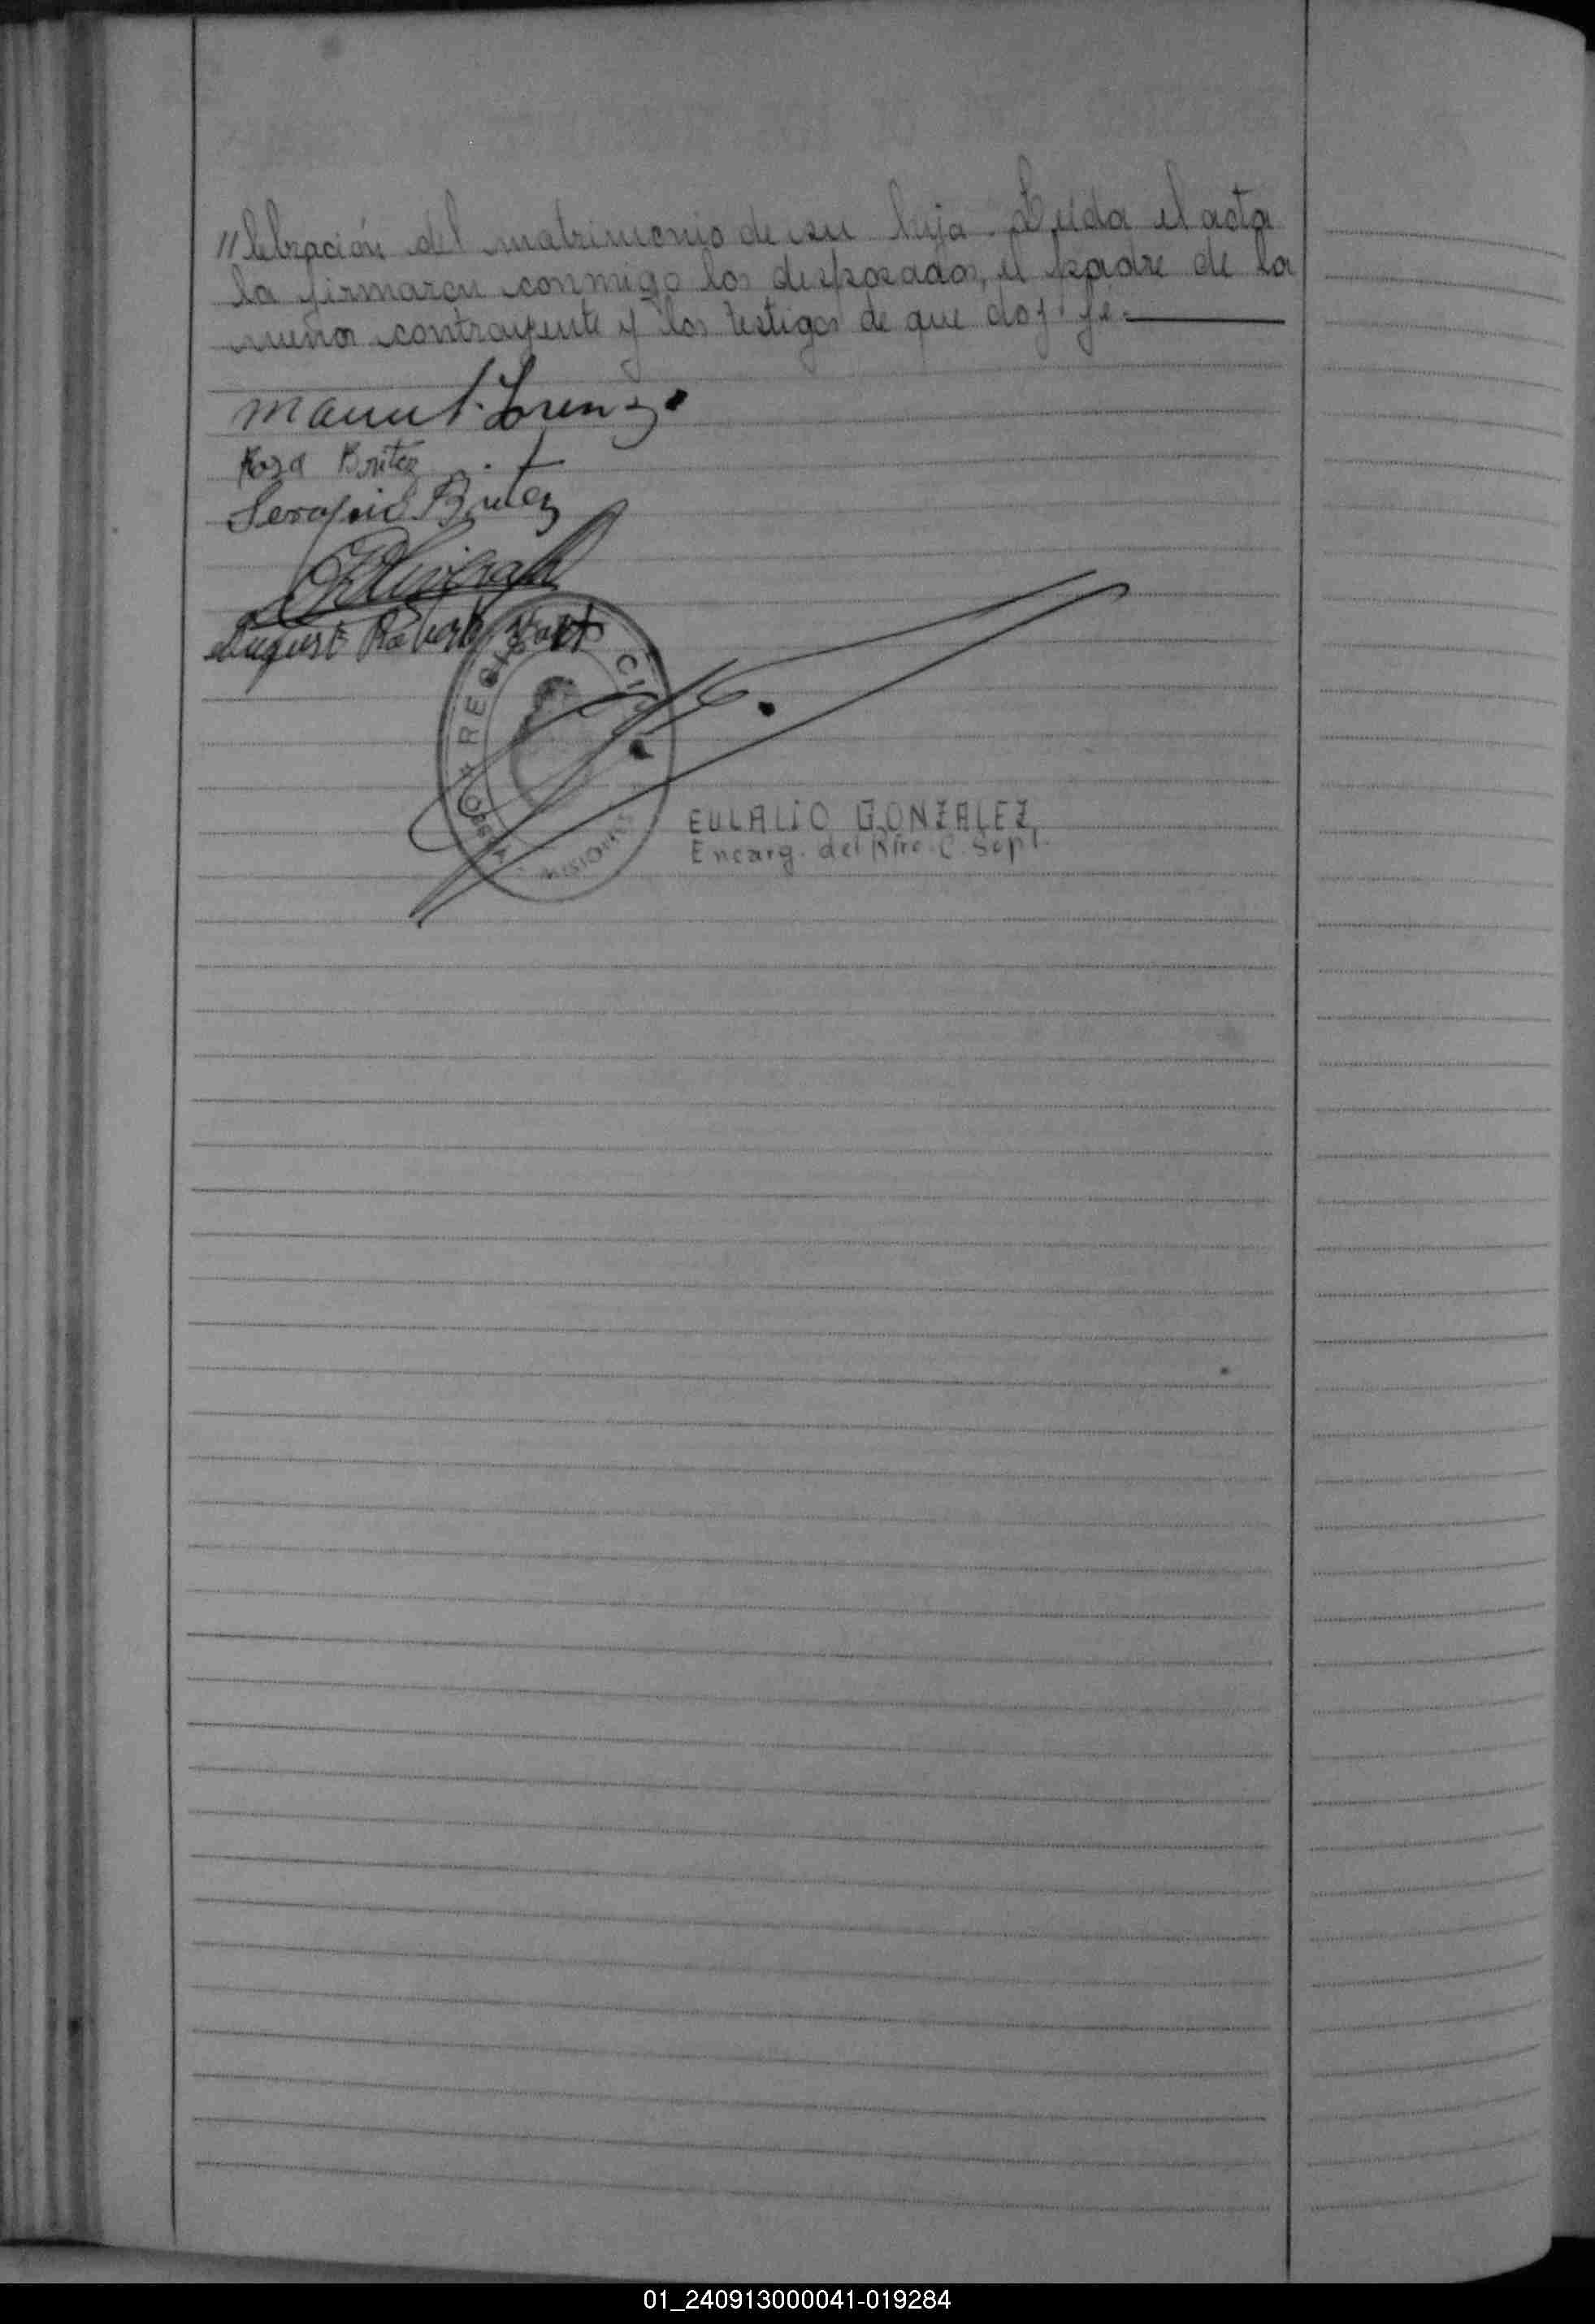 //lebración del matrimonio de su hija. Leída el acta
la firmaron conmigo los desposados, el padre de la
menor contrayente y los testigos de que doy fé.
Manuel Lorenzo
Rosa Britez
Serafin Britez
August Robert
REGISTRO CIVIL
OBERA
MISIONES
EULALIO GONZALEZ
Encarg. del Rtro. C. Sopl.
01_240913000041-019284